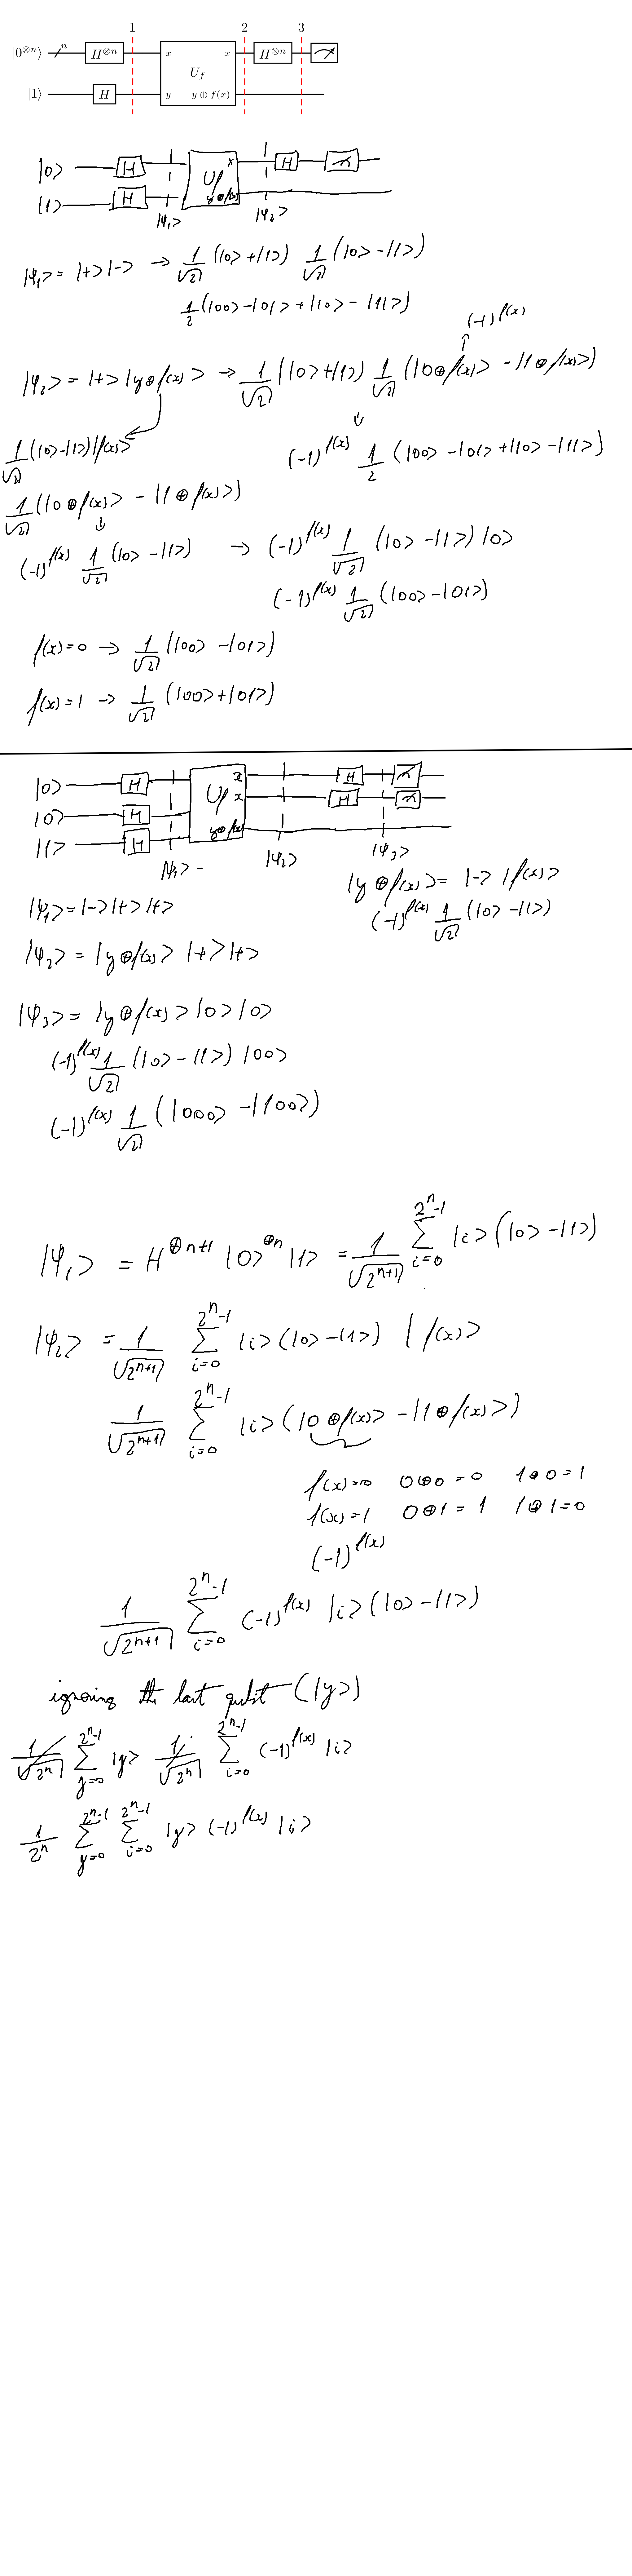 1 2 3
|0^{⊗n}⟩ n H^{⊗n} x x H^{⊗n}
U_f
|1⟩ H y y ⊕ f(x)
|0⟩ H x H
Uf
|1⟩ H y⊕f(x)
|ψ₁⟩ |ψ₂⟩
|ψ₁⟩ = |+⟩|-⟩ → 1/√2 (|0⟩+|1⟩) 1/√2 (|0⟩-|1⟩)
1/2 (|00⟩-|01⟩+|10⟩-|11⟩)
(-1)^{f(x)}
|ψ₂⟩ = |+⟩|y⊕f(x)⟩ → 1/√2 (|0⟩+|1⟩) 1/√2 (|0⊕f(x)⟩ - |1⊕f(x)⟩)
1/√2 (|0⟩-|1⟩)|f(x)⟩
(-1)^{f(x)} 1/2 (|00⟩-|01⟩+|10⟩-|11⟩)
1/√2 (|0⊕f(x)⟩ - |1⊕f(x)⟩)
(-1)^{f(x)} 1/√2 (|0⟩-|1⟩) → (-1)^{f(x)} 1/√2 (|0⟩-|1⟩)|0⟩
(-1)^{f(x)} 1/√2 (|00⟩-|01⟩)
f(x)=0 → 1/√2 (|00⟩-|01⟩)
f(x)=1 → 1/√2 (|00⟩+|01⟩)
|0⟩ H x H
|0⟩ H Uf x H
|1⟩ H y⊕f(x)
|ψ₁⟩ - |ψ₂⟩ |ψ₃⟩
|y⊕f(x)⟩ = |-⟩|f(x)⟩
|ψ₁⟩=|-⟩|+⟩|+⟩
(-1)^{f(x)} 1/√2 (|0⟩-|1⟩)
|ψ₂⟩ = |y⊕f(x)⟩|+⟩|+⟩
|ψ₃⟩ = |y⊕f(x)⟩|0⟩|0⟩
(-1)^{f(x)} 1/√2 (|0⟩-|1⟩)|00⟩
(-1)^{f(x)} 1/√2 (|000⟩-|100⟩)
|ψ₁⟩ = H^{⊕n+1} |0⟩^{⊕n} |1⟩ = 1/√2^{n+1} ∑_{i=0}^{2^n-1} |i⟩(|0⟩-|1⟩)
|ψ₂⟩ = 1/√2^{n+1} ∑_{i=0}^{2^n-1} |i⟩(|0⟩-|1⟩) |f(x)⟩
1/√2^{n+1} ∑_{i=0}^{2^n-1} |i⟩(|0⊕f(x)⟩-|1⊕f(x)⟩)
f(x)=0 0⊕0=0 1⊕0=1
f(x)=1 0⊕1=1 1⊕1=0
(-1)^{f(x)}
1/√2^{n+1} ∑_{i=0}^{2^n-1} (-1)^{f(x)} |i⟩(|0⟩-|1⟩)
ignoring the last qubit (|y⟩)
1/√2^n ∑_{y=0}^{2^n-1} |y⟩ 1/√2^n ∑_{i=0}^{2^n-1} (-1)^{f(x)} |i⟩
1/2^n ∑_{y=0}^{2^n-1} ∑_{i=0}^{2^n-1} |y⟩(-1)^{f(x)} |i⟩